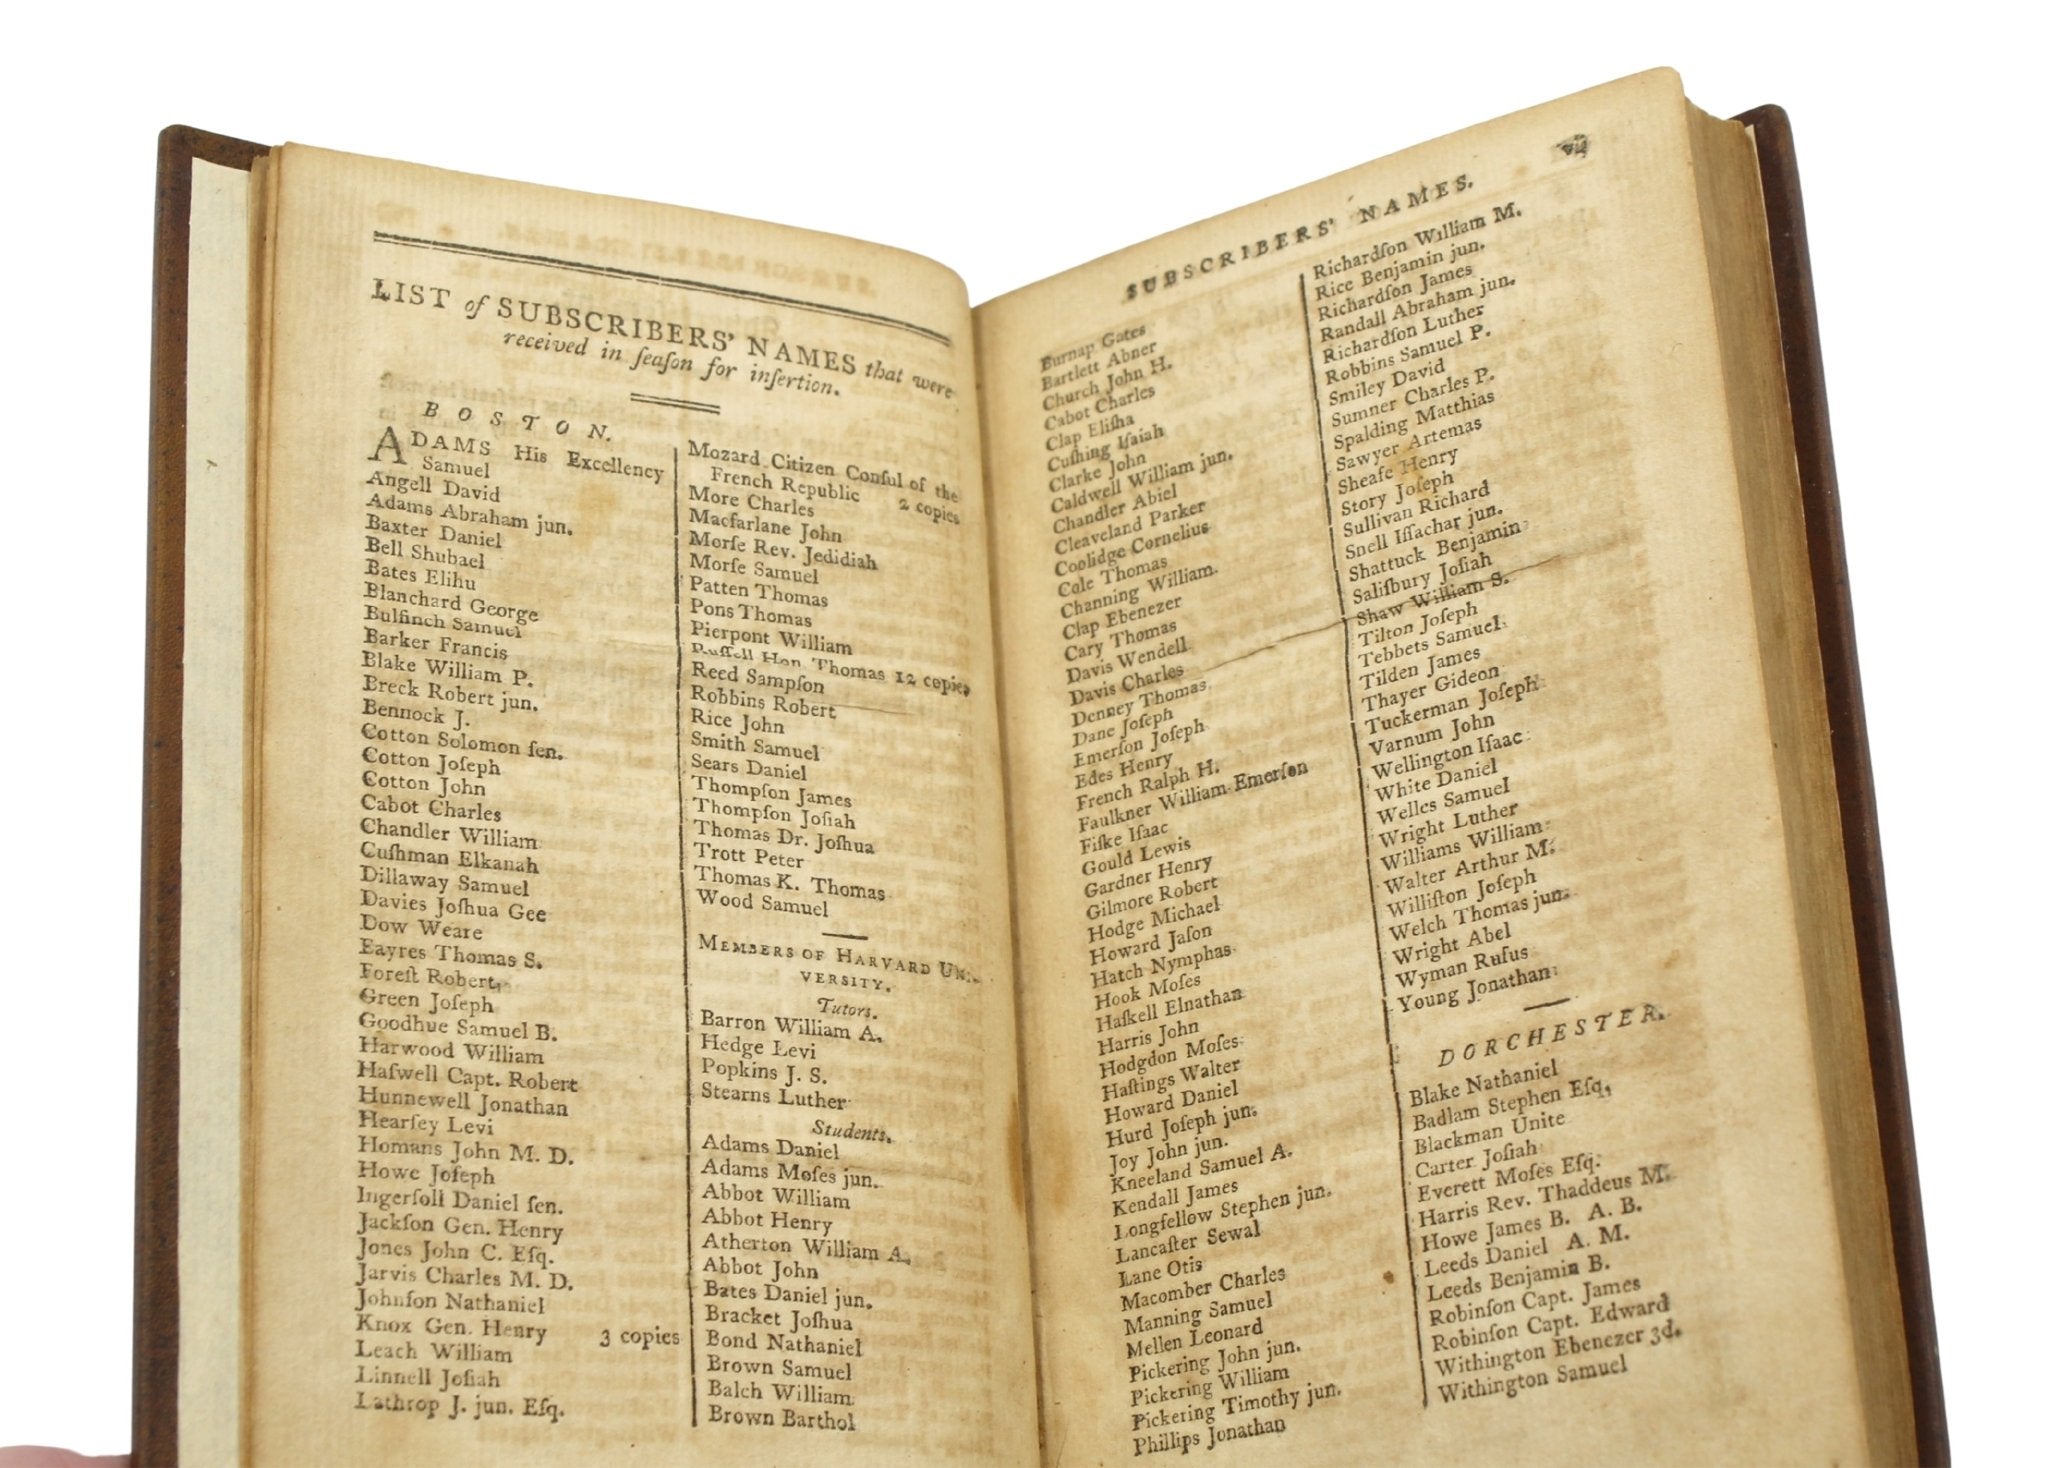 LIST of SUBSCRIBERS' NAMES that were
received in ſeaſon for inſertion.
BOSTON.
ADAMS His Excellency
Samuel
Angell David
Adams Abraham jun.
Baxter Daniel
Bell Shubael
Bates Elihu
Blanchard George
Bulfinch Samuel
Barker Francis
Blake William P.
Breck Robert jun.
Bennock J.
Cotton Solomon ſen.
Cotton Joſeph
Cotton John
Cabot Charles
Chandler William
Cuſhman Elkanah
Dillaway Samuel
Davies Joſhua Gee
Dow Weare
Eayres Thomas S.
Foreſt Robert,
Green Joſeph
Goodhue Samuel B.
Harwood William
Haſwell Capt. Robert
Hunnewell Jonathan
Hearſey Levi
Homans John M. D.
Howe Joſeph
Ingerſoll Daniel ſen.
Jackſon Gen. Henry
Jones John C. Eſq.
Jarvis Charles M. D.
Johnſon Nathaniel
Knox Gen. Henry 3 copies
Leach William
Linnell Joſiah
Lathrop J. jun. Eſq.
Mozard Citizen Conſul of the
French Republic 2 copies
More Charles
Macfarlane John
Morſe Rev. Jedidiah
Morſe Samuel
Patten Thomas
Pons Thomas
Pierpont William
Ruſſell Hon. Thomas 12 copies
Reed Sampſon
Robbins Robert
Rice John
Smith Samuel
Sears Daniel
Thompſon James
Thompſon Joſiah
Thomas Dr. Joſhua
Trott Peter
Thomas K. Thomas
Wood Samuel
MEMBERS OF HARVARD UNI-
VERSITY.
Tutors.
Barron William A.
Hedge Levi
Popkins J. S.
Stearns Luther
Students.
Adams Daniel
Adams Moſes jun.
Abbot William
Abbot Henry
Atherton William A.
Abbot John
Bates Daniel jun.
Bracket Joſhua
Bond Nathaniel
Brown Samuel
Balch William
Brown Barthol
SUBSCRIBERS' NAMES.
vij
Burnap Gates
Bartlett Abner
Church John H.
Cabot Charles
Clap Eliſha
Cuſhing Iſaiah
Clarke John
Caldwell William jun.
Chandler Abiel
Cleaveland Parker
Coolidge Cornelius
Cole Thomas
Channing William
Clap Ebenezer
Cary Thomas
Davis Wendell
Davis Charles
Denney Thomas
Dane Joſeph
Emerſon Joſeph
Edes Henry
French Ralph H.
Faulkner William Emerſon
Fiſke Iſaac
Gould Lewis
Gardner Henry
Gilmore Robert
Hodge Michael
Howard Jaſon
Hatch Nymphas
Hook Moſes
Haſkell Elnathan
Harris John
Hodgdon Moſes
Haſtings Walter
Howard Daniel
Hurd Joſeph jun.
Joy John jun.
Kneeland Samuel A.
Kendall James
Longfellow Stephen jun.
Lancaſter Sewal
Lane Otis
Macomber Charles
Manning Samuel
Mellen Leonard
Pickering John jun.
Pickering William
Pickering Timothy jun.
Phillips Jonathan
Richardſon William M.
Rice Benjamin jun.
Richardſon James
Randall Abraham jun.
Richardſon Luther
Robbins Samuel P.
Smiley David
Sumner Charles P.
Spalding Matthias
Sawyer Artemas
Sheafe Henry
Story Joſeph
Sullivan Richard
Snell Iſſachar jun.
Shattuck Benjamin
Saliſbury Joſiah
Shaw William S.
Tilton Joſeph
Tebbets Samuel
Tilden James
Thayer Gideon
Tuckerman Joſeph
Varnum John
Wellington Iſaac
White Daniel
Welles Samuel
Wright Luther
Williams William
Walter Arthur M.
Williſton Joſeph
Welch Thomas jun.
Wright Abel
Wyman Rufus
Young Jonathan
DORCHESTER.
Blake Nathaniel
Badlam Stephen Eſq.
Blackman Unite
Carter Joſiah
Everett Moſes Eſq.
Harris Rev. Thaddeus M.
Howe James B. A. B.
Leeds Daniel A. M.
Leeds Benjamin B.
Robinſon Capt. James
Robinſon Capt. Edward
Withington Ebenezer 3d.
Withington Samuel